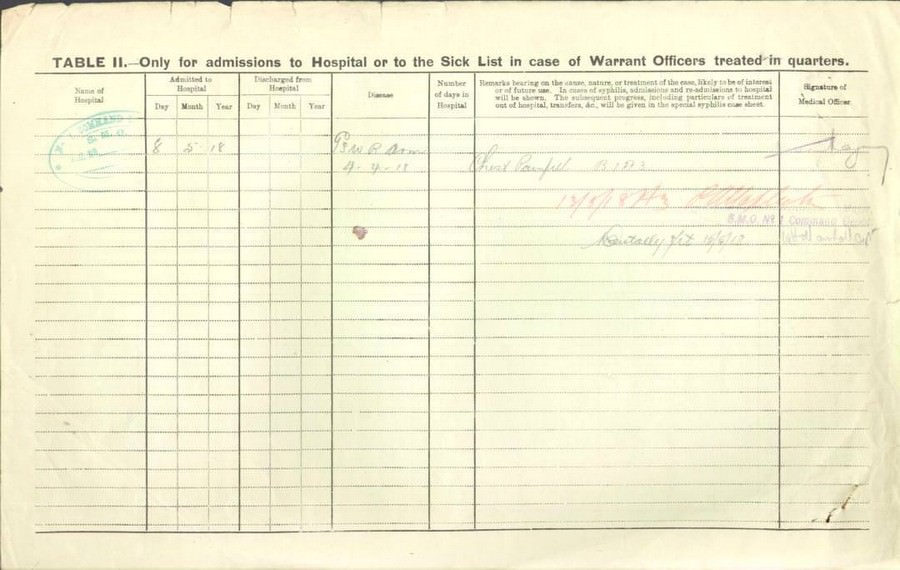 TABLE II.—Only for admissions to Hospital or to the Sick List in case of Warrant Officers treated in quarters.
Name of Hospital
Admitted to Hospital
Day Month Year
Discharged from Hospital
Day Month Year
Disease
Number of days in Hospital
Remarks bearing on the cause, nature, or treatment of the case, likely to be of interest
or of future use. In cases of syphilis, admissions and re-admissions to hospital
will be shown. The subsequent progress, including particulars of treatment
out of hospital, transfers, &c., will be given in the special syphilis case sheet.
Signature of Medical Officer
COMMAND
8 5 18
R Arm
4-4-18
Chest Painful
S.M.O. No. 1 Command
Dentally Fit